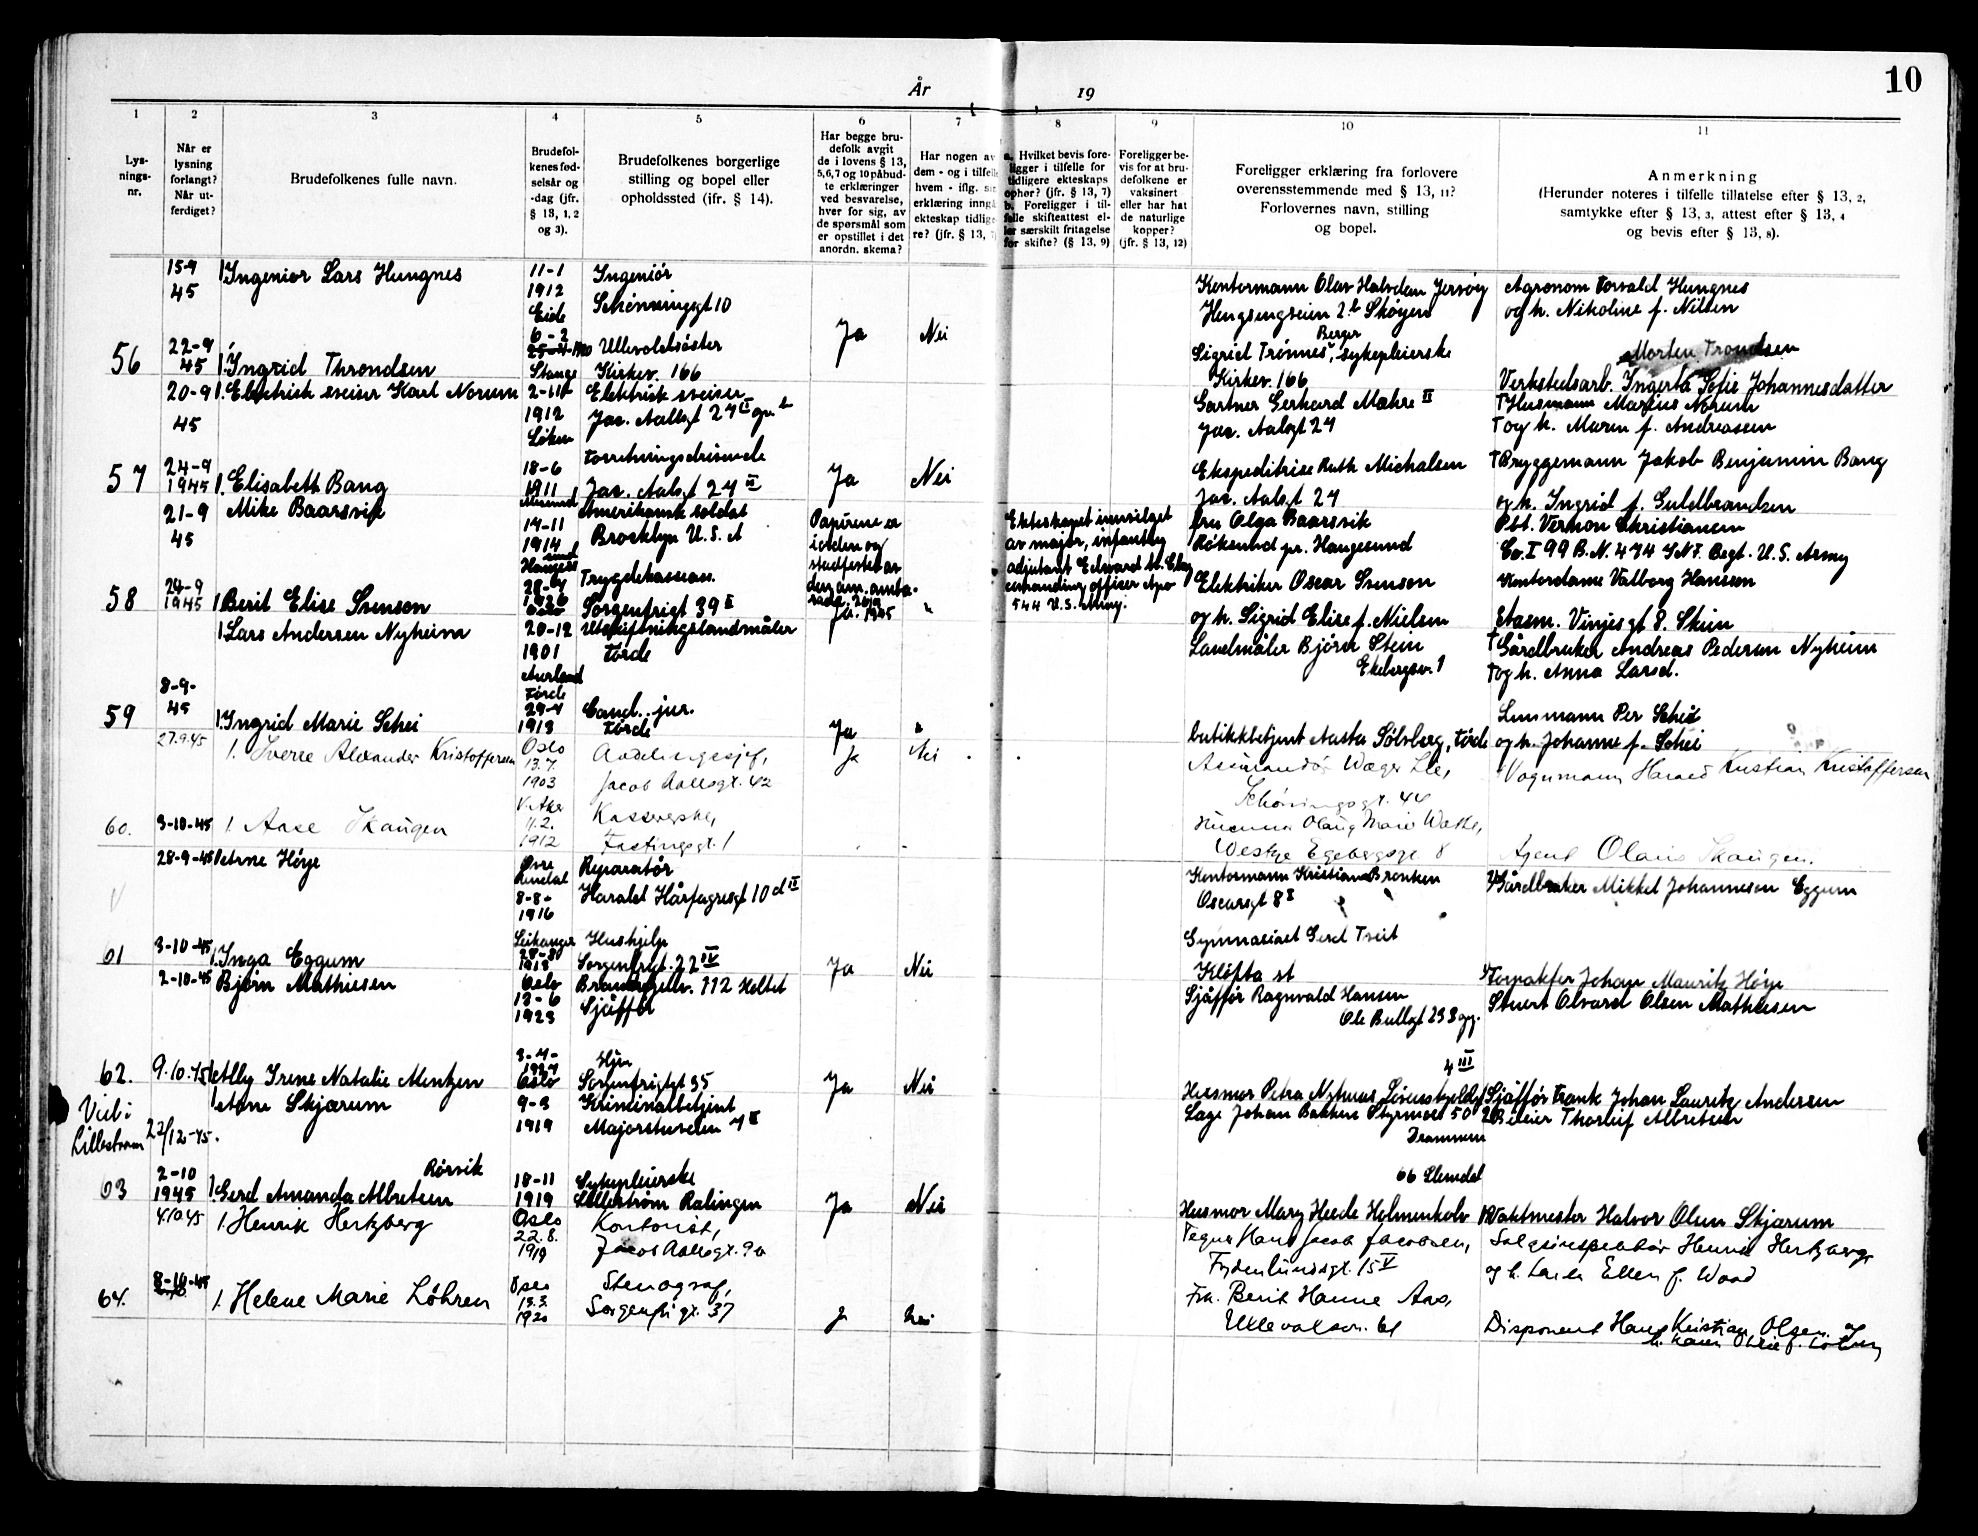 10
År 19
1 2 3 4 5 6 7 8 9 10 11
Lys-
nings-
nr.
Når er
lysning
forlangt?
Når ut-
ferdiget?
Brudefolkenes fulle navn.
Brudefol-
kenes fød-
selsår og
-dag (jfr.
§ 13, 1, 2
og 3).
Brudefolkenes borgerlige
stilling og bopel eller
opholdssted (ifr. § 14).
Har begge bru-
defolk avgit
de i lovens § 13,
5,6,7 og 10 påbud-
te erklæringer
ved besvarelse,
hver for sig, av
de spørsmål som
er opstillet i det
anordn. skema?
Har nogen av
dem - og i tilfelle
hvem - iflg.
erklæring inngå
ekteskap tidlige
re? (jfr. § 13,
a. Hvilket bevis fore-
ligger i tilfelle for
tidligere ekteskaps
ophør? (jfr. § 13, 7)
b. Foreligger i til-
felle skifteattest el-
ler særskilt fritagelse
for skifte? (§ 13, 9)
Foreligger be-
vis for at bru-
defolkene er
vaksinert
eller har hat
de naturlige
kopper?
(jfr. § 13, 12)
Foreligger erklæring fra forlovere
overensstemmende med § 13, 11?
Forlovernes navn, stilling
og bopel.
Anmerkning
(Herunder noteres i tilfelle tillatelse efter § 13, 2,
samtykke efter § 13, 3, attest efter § 13, 4
og bevis efter § 13, 8).
15-9
45
1. Ingeniør Lars Hungnes
11-1
1912
Eide
Ingeniør
Schønninggt 10
Kontormann Olav Halvdan
Skøyen
Agronom Torvald Hungnes
og h. Nikoline f. Nilsen
56
22-9
45
1. Ingrid Throndsen
6-2
Stange
Ullevoldsøster
Kirkev. 166
Ja
Nei
Berger
Sigrid Trønnes, sykepleierske
Kirkev. 166
Morten Trondsen
Verkstedsarb. Ingerta Sofie Johannesdatter
20-9
45
1. Elektrisk sveiser Karl Norum
1912
Løken
Elektrisk sveiser
Jac. Aallsgt 24 II
Gartner Gerhard Mæhre II
Jac. Aalsgt 24
Husmann Marius Norum
og h. Maren f. Andreassen
57
24-9
1945
1. Elisabeth Bang
18-6
1911
Forretningsdrivende
Jac. Aalsgt 24 II
Ja
Nei
Ekspeditrise Ruth Michalsen
Jac. Aalsgt 24
Bryggemann Jakob Benjamin Bang
og h. Ingrid f. Guldbrandsen
21-9
45
Mike Baarsvik
14-11
1914
Amerikansk soldat
Brooklyn U.S.A
Papirene er
i orden og
Ekteskapet innvilget
av major, infantry
adjutant Edward
544 U.S. Army.
fru Olga Baarsvik
Røksund pr. Haugesund
Pbt. Vernon Christiansen
Co. I 99 B.N. 474 INF. Regt. U.S. Army
58
24-9
1945
1. Berit Elise Svenson
1920
Oslo
Trygdekassean.
Sorgenfrigt 39 I
Elektriker Oscar Svenson
og h. Sigrid Elise f. Nielsen
Kontordame Valborg Hanssen
Aasm. Vinjesgt 8. Skien
1. Lars Andersen Nyheim
20-12
1901
Aurland
Utskiftningslandmåler
Førde
Landmåler Bjørn Stein
Ekebergsv. 1
Gårdbruker Andreas Pedersen Nyheim
og h. Anna Larsd.
59
8-9-
45
1. Ingrid Marie Schei
Førde
29-4
1913
Cand. jur.
Førde
Ja
"
butikkbetjent Aasta Sølvberg, Førde
Lensmann Per Schei
og h. Johanne f. Schei
27.9.45
1. Sverre Alexander Kristoffersen
Oslo
13.7.
1903
Avdelingssjef,
Jacob Aallsgt. 42
Ja
Nei
Assurandør Wæger Lie,
Schøningsgt. 44
Vognmann Harald Kristian Kristoffersen
60.
3-10-45
1. Aase Skaugen
11.2.
1912
Kassererske,
Fastingsgt. 1
Westye Egebergsgt. 8
Agent Olaus Skaugen.
28-9-45
1. Arne Høye
Øvre
Rindal
8-8-
1916
Reparatør
Harald Hårfagresgt 10 d II
Kontormann Kristian Brenken
Oscarsgt 8 I
Gårdbruker Mikkel Johannesen Eggum
61
3-10-45
1. Inga Eggum
Leikanger
28-8
1913
Hushjelp
Sorgenfrigt. 22 IV
Ja
Nei
Gymnasiast Gerd Tveit
Kløfta st
Forpakter Johan Mauritz Høye
2-10-45
Bjørn Mathiesen
Oslo
13-6
1923
112 Holtet
Sjåffør
Sjåffør Ragnvald Hansen
Ole Bullsgt 23 B
Stuert Olvard Olsen Mathiesen
62.
9.10.45
1. Ally Irene Natalie Mentzen
3-4-
1924
Oslo
Hjem
Sorgenfrigt 35
Ja
Nei
4 III
Husmor Petra Nyhuus
Sjåffør Frank Johan Lauritz Andersen
Viet i
Lillestrøm 22/12-45.
1. Arne Skjærum
9-3
1919
Kriminalbetjent
Majorstuveien 4 II
Lage Johan Bakkene Styrmoes 50
Drammen
Thorleif Albretsen
63
2-10
1945
Rørvik
1. Gerd Amanda Albretsen
18-11
1919
Sykepleierske
Lillestrøm Rælingen
Ja
Nei
66 Slemdal
Husmor Mary Heede Holmenkolv
Vaktmester Halvor Olsen Skjærum
4.10.45
1. Henrik Hertzberg
Oslo
22.8.
1919
Kontorist,
Jacob Aallsgt. 9a
Tegner Hans Jacob Jacobsen,
Frydenlundsgt. 15 V
Salgsinspektør Henrik Hertzberg
og h. Ellen f. Wood
64.
8-10-45
1. Helene Marie Løhren
Oslo
13.3.
1920
Stenograf,
Sorgenfrigt. 37
Ja
Nei
Frk. Berit Hanne Aas,
Ullevalsv. 61
Disponent Hans Kristian Olsen og
h. Karen f. Løhren